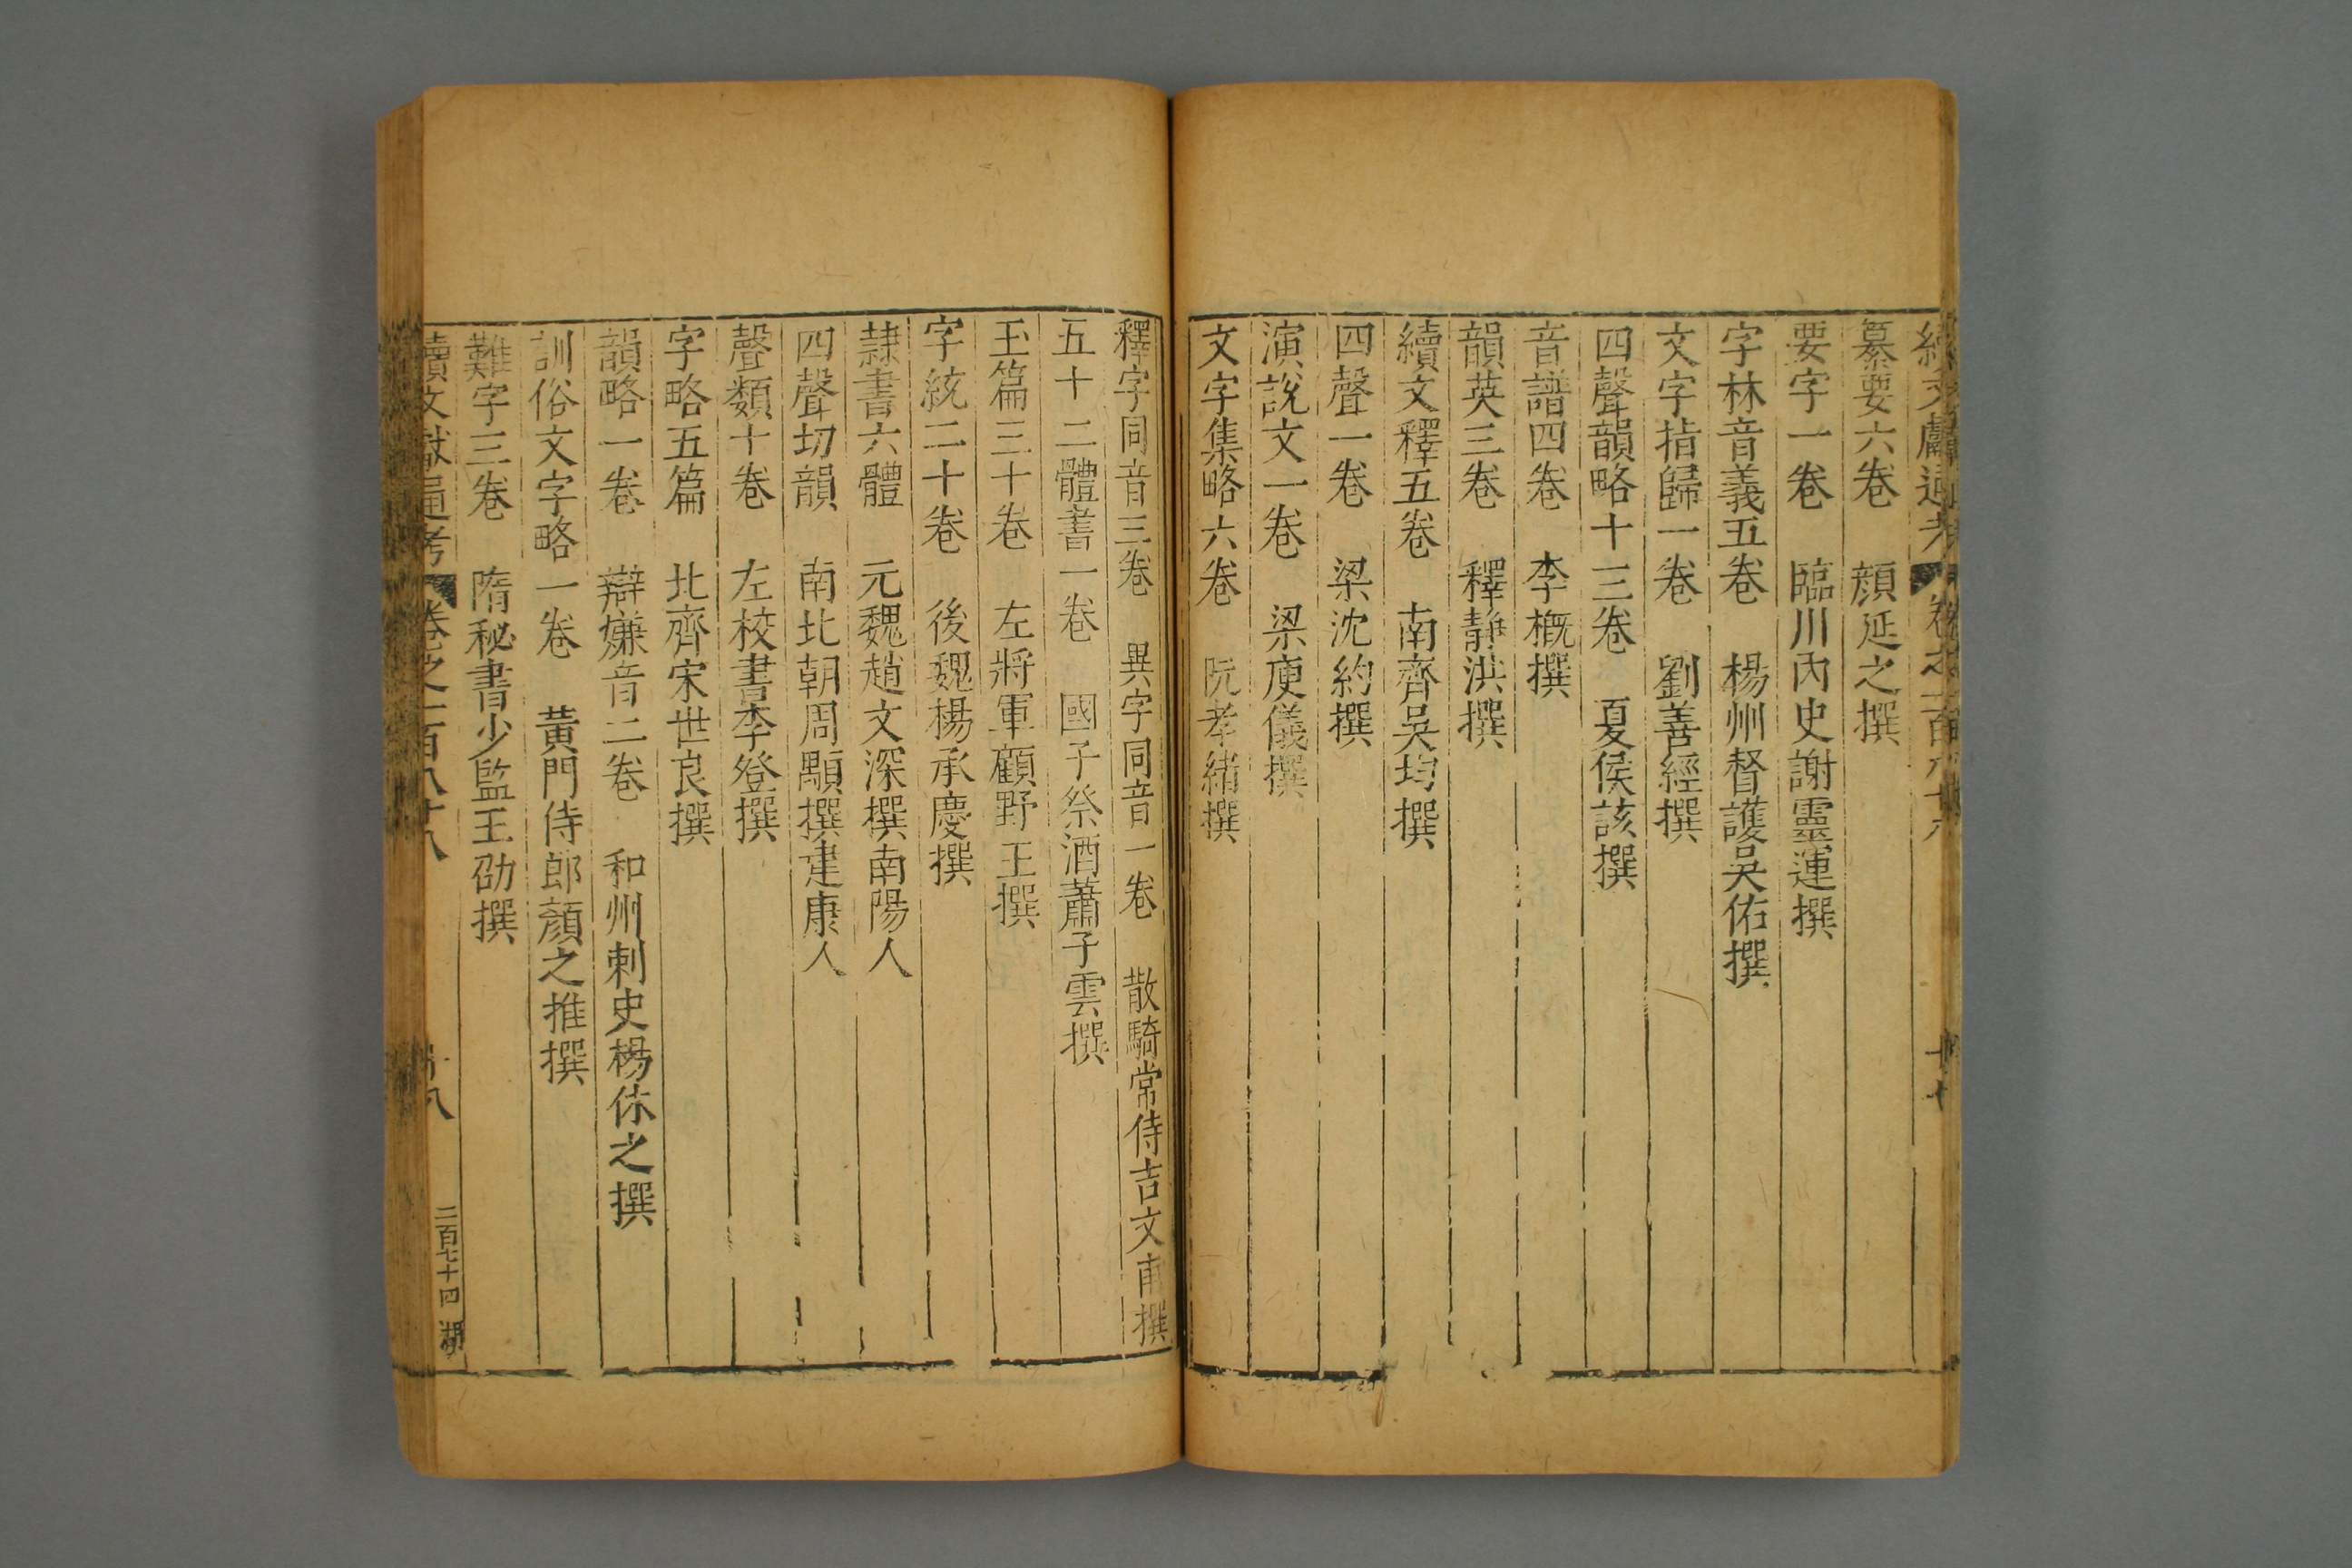 續文獻通考 卷之一百八十八 十七
纂要六卷 顔延之撰
要字一卷 臨川內史謝靈運撰
字林音義五卷 楊州督護吳佑撰
文字指歸一卷 劉善經撰
四聲韻略十三卷 夏侯該撰
音譜四卷 李概撰
韻英三卷 釋靜洪撰
續文釋五卷 南齊吳均撰
四聲一卷 梁沈約撰
演說文一卷 梁庾儀撰
文字集略六卷 阮孝緒撰
釋字同音三卷 異字同音一卷 散騎常侍吉文甫撰
五十二體書一卷 國子祭酒蕭子雲撰
玉篇三十卷 左將軍顧野王撰
字統二十卷 後魏楊承慶撰
隷書六體 元魏趙文深撰南陽人
四聲切韻 南北朝周顒撰建康人
聲類十卷 左校書李登撰
字略五篇 北齊宋世良撰
韻略一卷 辯嫌音二卷 和州刺史楊休之撰
訓俗文字略一卷 黃門侍郎顏之推撰
難字三卷 隋秘書少監王劭撰
續文獻通考 卷之一百八十八 十八 二百七十四 湖